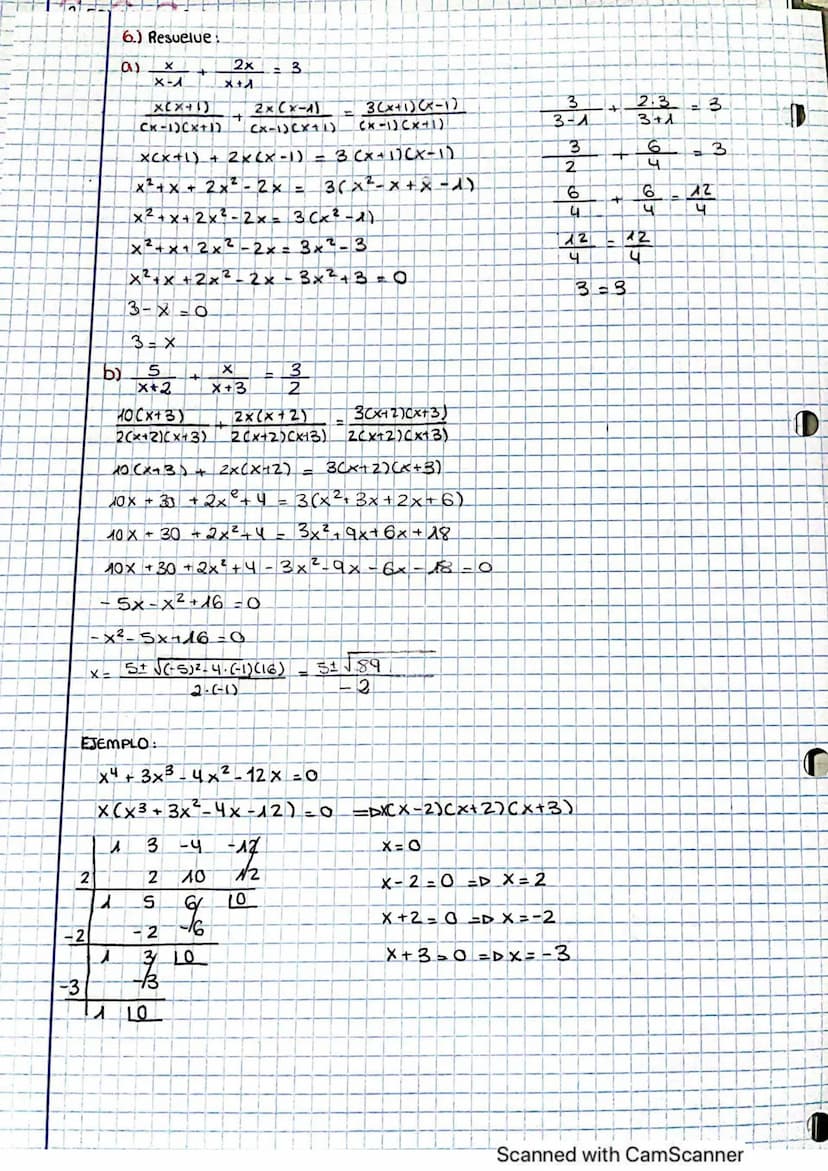 6.) Resuelve:
a) x/(x-1) + 2x/(x+1) = 3
x(x+1)/((x-1)(x+1)) + 2x(x-1)/((x-1)(x+1)) = 3(x+1)(x-1)/((x-1)(x+1))
x(x+1) + 2x(x-1) = 3(x+1)(x-1)
x² + x + 2x² - 2x = 3(x² - x + x - 1)
x² + x + 2x² - 2x = 3(x² - 1)
x² + x + 2x² - 2x = 3x² - 3
x² + x + 2x² - 2x - 3x² + 3 = 0
3 - x = 0
3 = x
3/(3-1) + 2·3/(3+1) = 3
3/2 + 6/4 = 3
6/4 + 6/4 = 12/4
12/4 = 12/4
3 = 3
b) 5/(x+2) + x/(x+3) = 3/2
10(x+3)/(2(x+2)(x+3)) + 2x(x+2)/(2(x+2)(x+3)) = 3(x+2)(x+3)/(2(x+2)(x+3))
10(x+3) + 2x(x+2) = 3(x+2)(x+3)
10x + 30 + 2x² + 4 = 3(x² + 3x + 2x + 6)
10x + 30 + 2x² + 4 = 3x² + 9x + 6x + 18
10x + 30 + 2x² + 4 - 3x² - 9x - 6x - 18 = 0
- 5x - x² + 16 = 0
- x² - 5x + 16 = 0
x = (5 ± √((-5)² - 4·(-1)(16)))/(2·(-1)) = (5 ± √89)/(-2)
EJEMPLO:
x⁴ + 3x³ - 4x² - 12x = 0
x(x³ + 3x² - 4x - 12) = 0 ⇒ x(x-2)(x+2)(x+3)
1 3 -4 -12
2 2 10 12
1 5 6 0
-2 -2 -6
1 3 0
-3 -3
1 0
x = 0
x - 2 = 0 ⇒ x = 2
x + 2 = 0 ⇒ x = -2
x + 3 = 0 ⇒ x = -3
Scanned with CamScanner